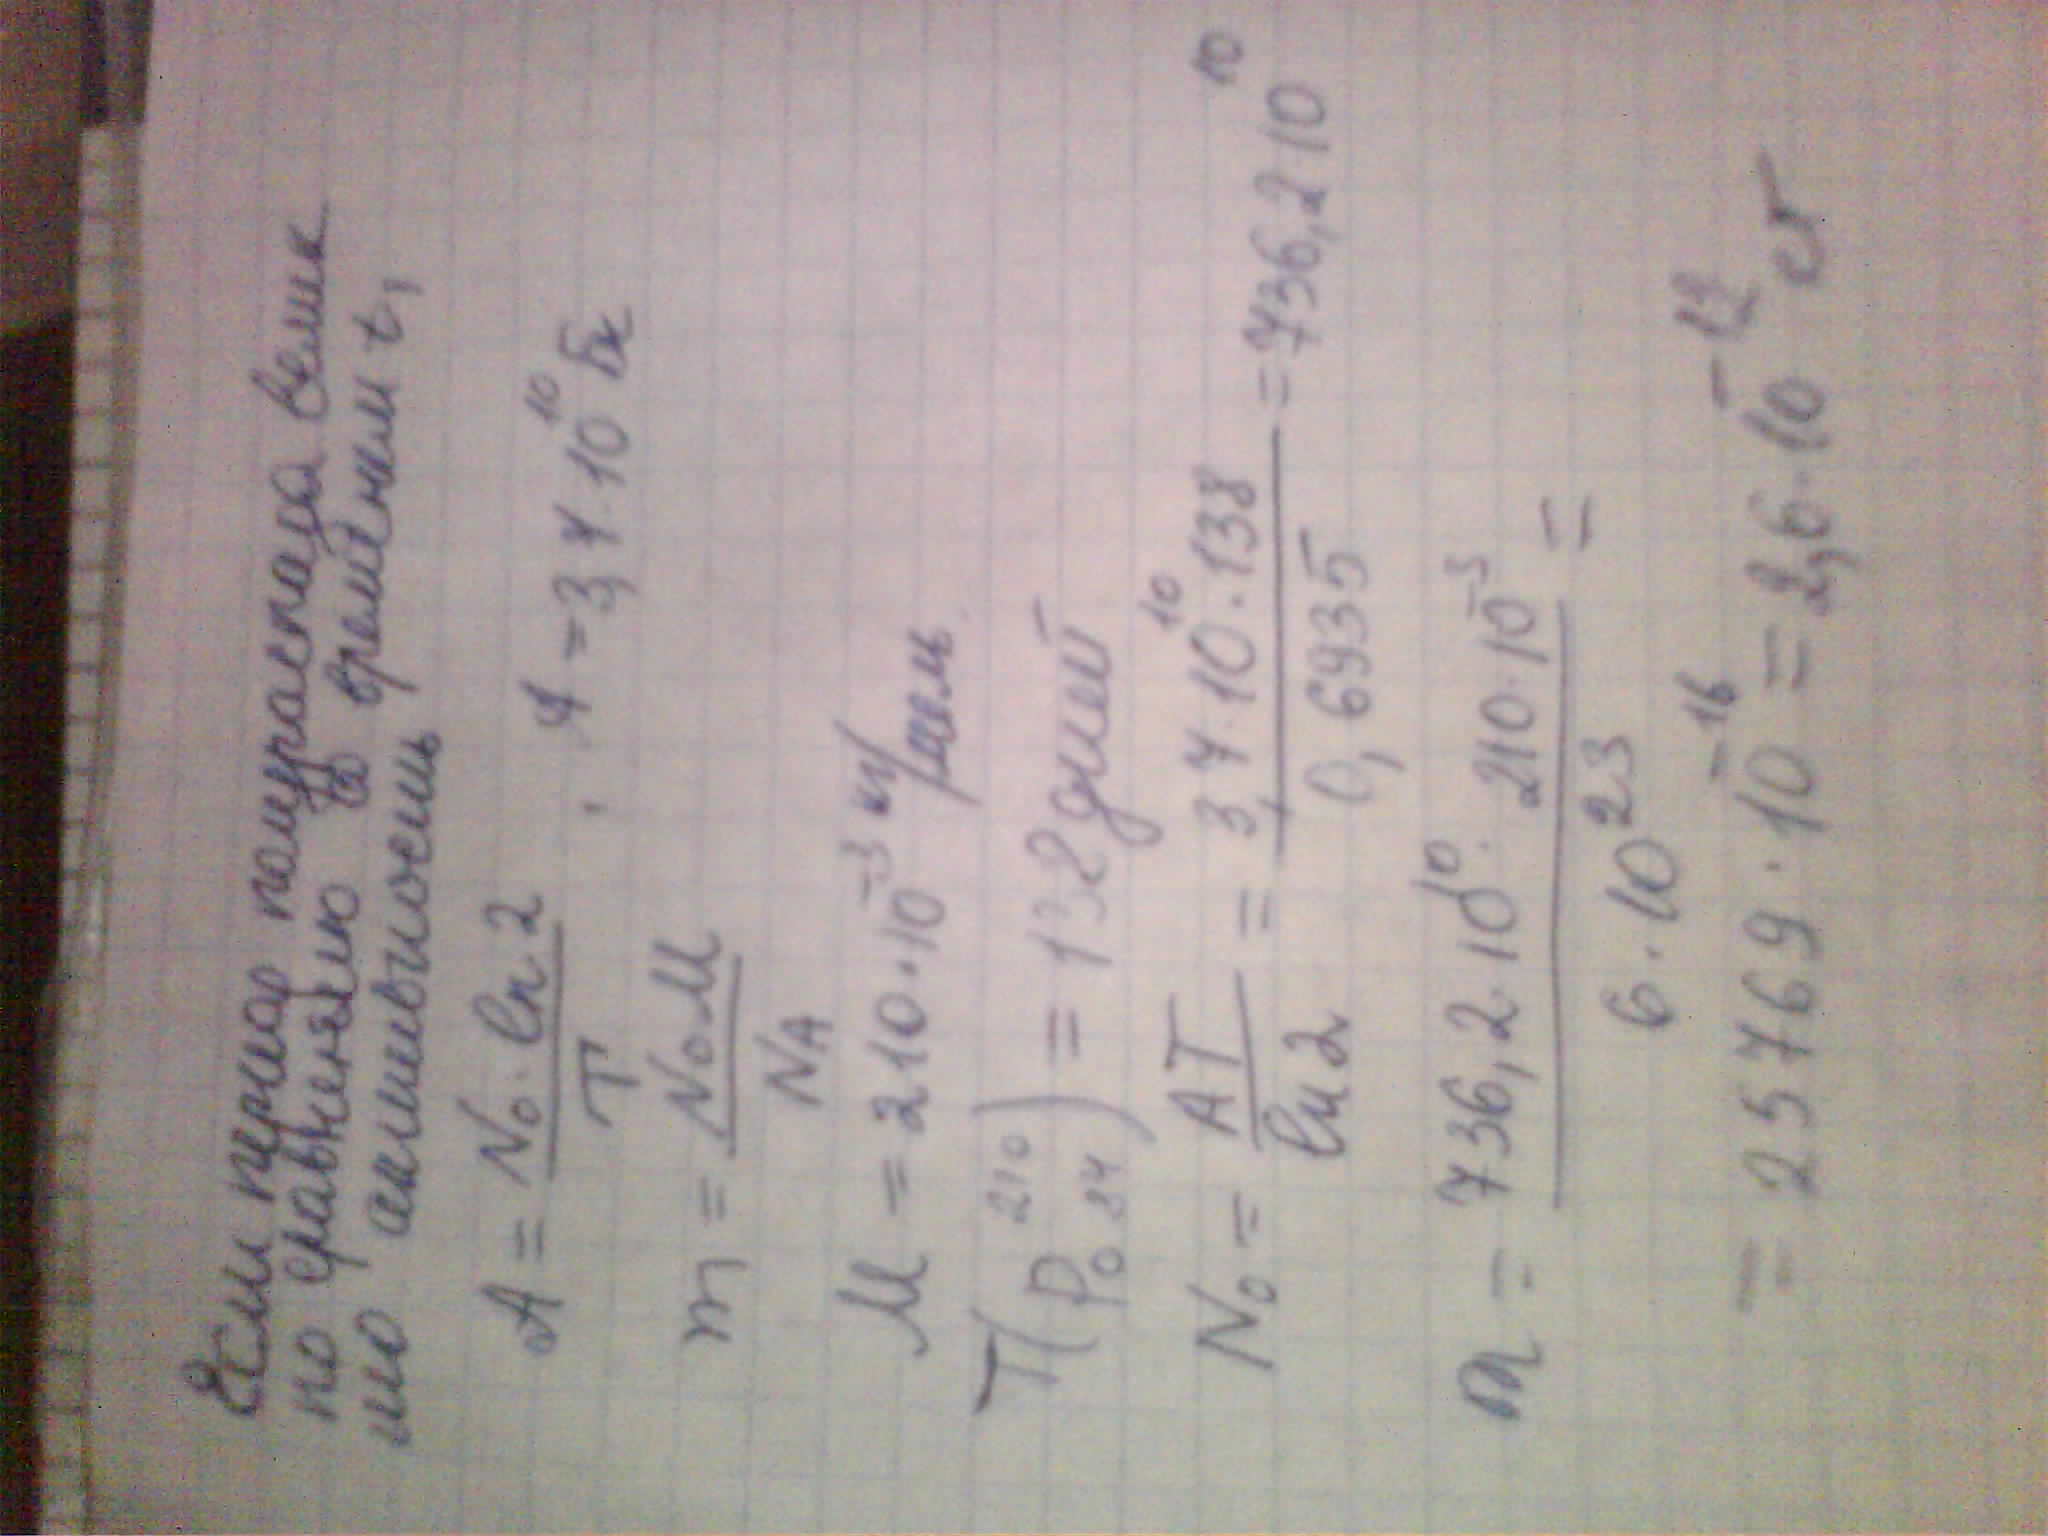 Если период полураспада велик
по сравнению со временем t,
то активность
A = N₀·ln2 / T ; A = 3,7·10¹⁰ Бк
m = N₀M / N_A
M = 210·10⁻³ кг/моль
T(Po²¹⁰₈₄) = 132 дней
N₀ = AT / ln2 = 3,7·10¹⁰·138 / 0,6935 = 736,2 10¹⁰
m = 736,2·10¹⁰·210·10⁻³ / 6·10²³ =
= 25769·10⁻¹⁶ = 2,6·10⁻¹² кг